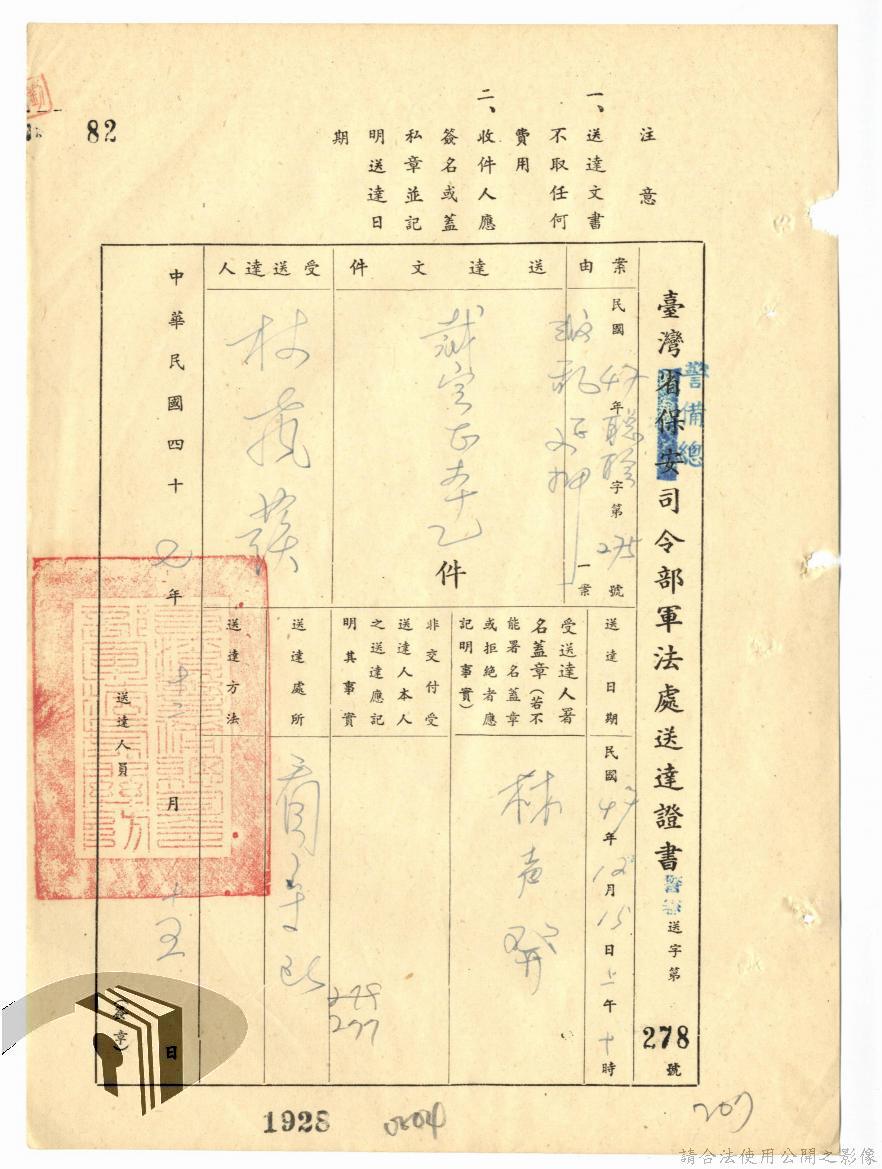 82
注意
一、送達文書
不取任何
費用
二、收件人應
簽名或蓋
私章並記
明送達日
期
臺灣省保安司令部軍法處送達證書
警備總
送字第278號
案由
民國47年聯字第275號
一案
送達文件
裁定正本乙件
受送達人
林
送達日期
民國47年12月15日上午十時
受送達人署
名蓋章(若不
能署名蓋章
或拒絕者應
記明事實)
林声發
非交付受
送達人本人
之送達應記
明其事實
278
277
送達處所
看守所
送達方法
中華民國四十七年十二月十五日
送達人員(簽章)
1928
0304
207
請合法使用公開之影像